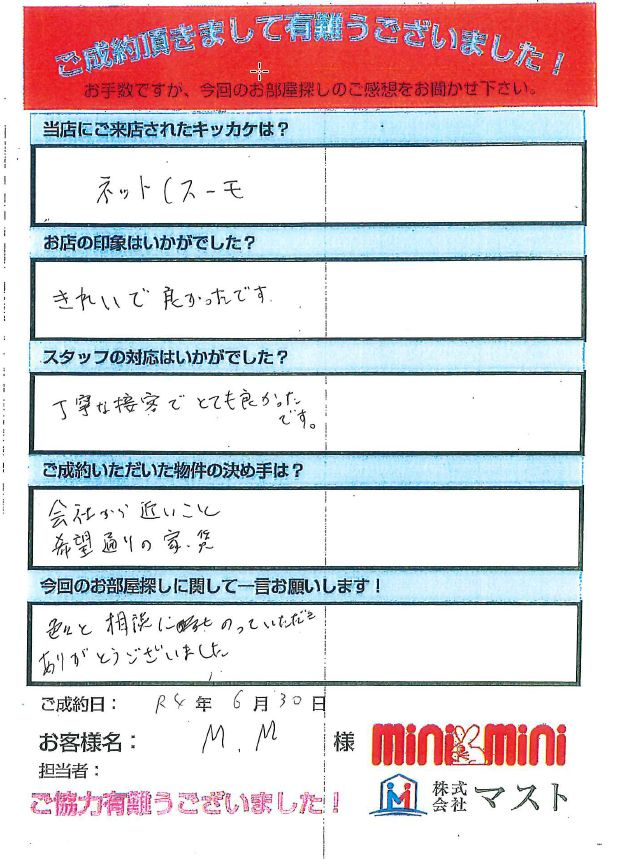 ご成約頂きまして有難うございました！
お手数ですが、今回のお部屋探しのご感想をお聞かせ下さい。
当店にご来店されたキッカケは？
ネット(スーモ
お店の印象はいかがでした？
きれいで良かったです
スタッフの対応はいかがでした？
丁寧な接客でとても良かった
です。
ご成約いただいた物件の決め手は？
会社から近いこと
希望通りの家.賃
今回のお部屋探しに関して一言お願いします！
色々と相談にのっていただき
ありがとうございました
ご成約日： R4年 6月30日
お客様名： M.M 様
担当者：
ご協力有難うございました！
mini mini
株式会社マスト